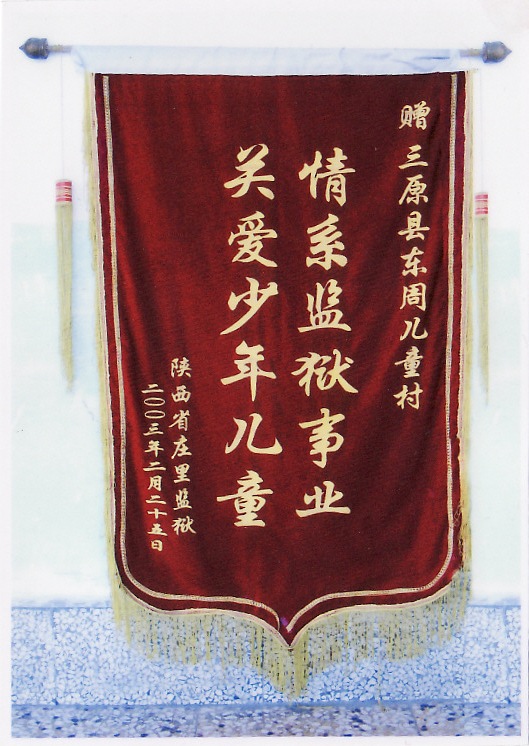 赠三原县东周儿童村
情系监狱事业
关爱少年儿童
陕西省庄里监狱
二〇〇三年二月二十五日